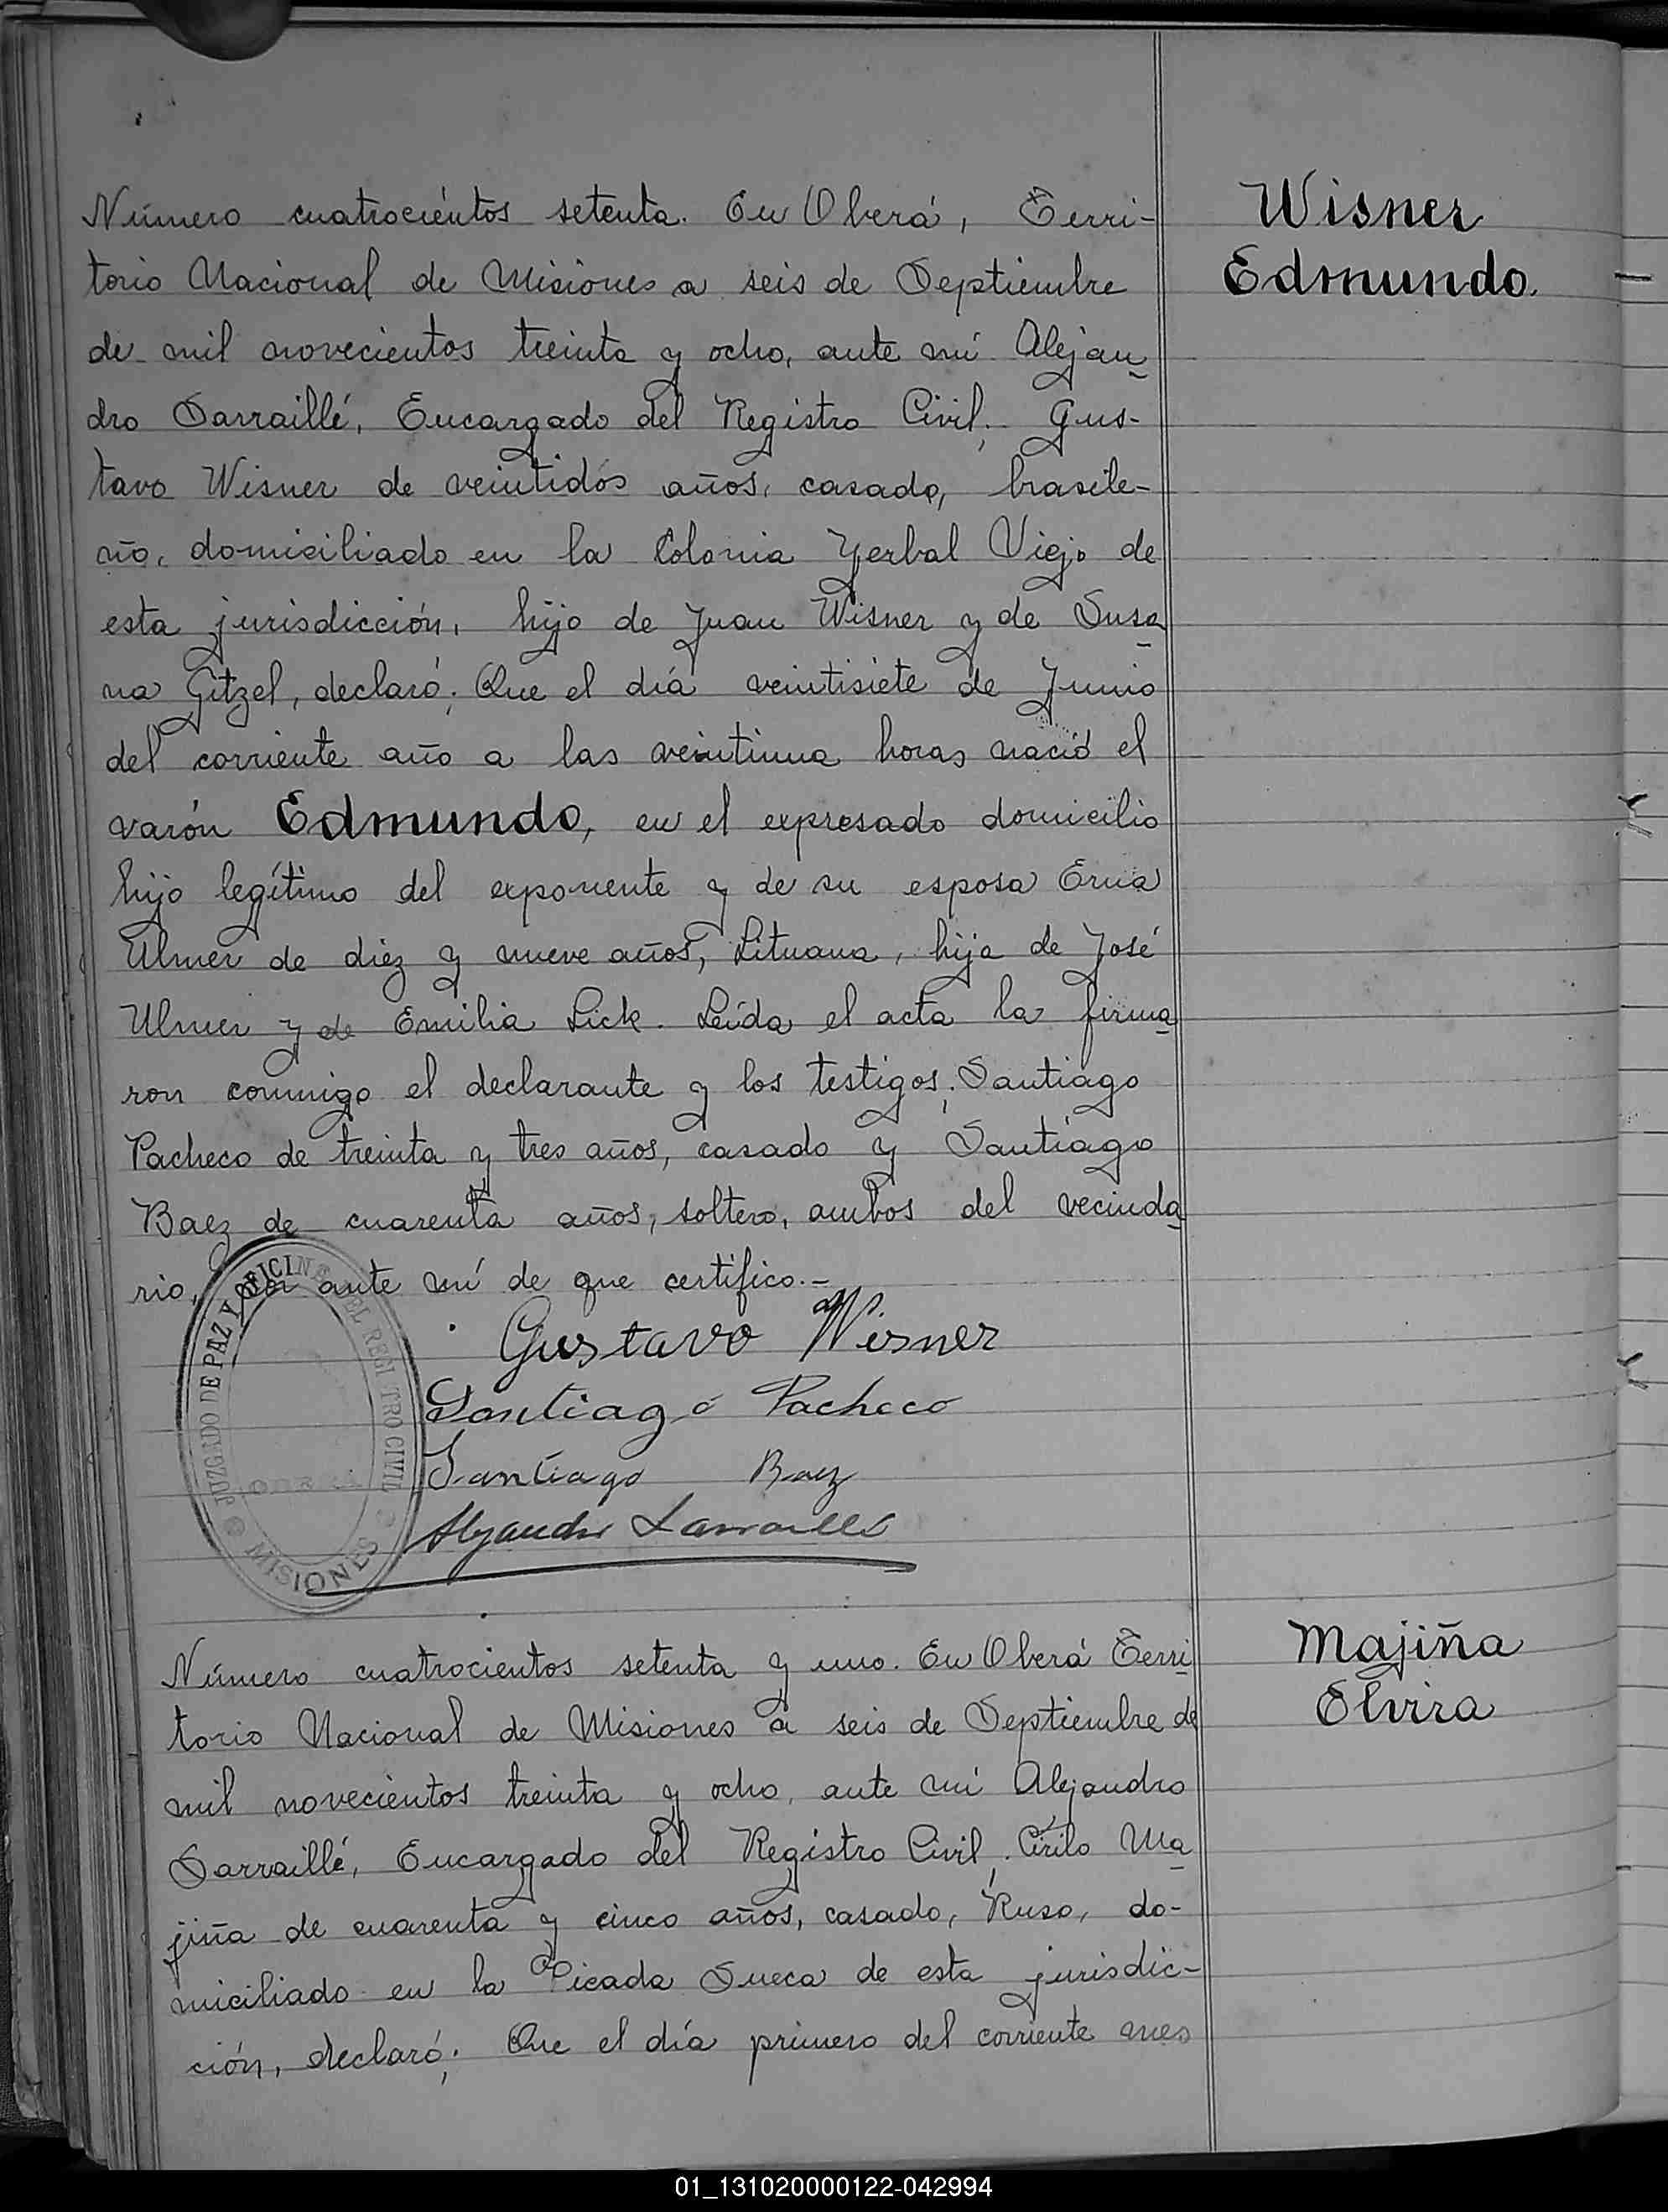 Wisner
Edmundo.
Número cuatrocientos setenta. En Oberá, Terri-
torio Nacional de Misiones a seis de Septiembre
de mil novecientos treinta y ocho, ante mí Alejan
dro Sarraillé, Encargado del Registro Civil; Gus-
tavo Wisner de veintidós años, casado, brasile-
ño, domiciliado en la Colonia Yerbal Viejo de
esta jurisdicción, hijo de Juan Wisner y de Susa
na Gitzel, declaró: Que el día veintisiete de Junio
del corriente año a las veintiuna horas nació el
varón Edmundo, en el expresado domicilio
hijo legítimo del exponente y de su esposa Erna
Ulmer de diez y nueve años, Lituana, hija de José
Ulmer y de Emilia Lick. Leída el acta la firma
ron conmigo el declarante y los testigos; Santiago
Pacheco de treinta y tres años, casado y Santiago
Baez de cuarenta años, soltero, ambos del vecinda
rio, por ante mí de que certifico.-
Gustavo Wisner
Santiago Pacheco
Santiago Baez
Alejandro Sarraillé
JUZGADO DE PAZ Y OFICINA DEL REGISTRO CIVIL
MISIONES
Majiña
Elvira
Número cuatrocientos setenta y uno. En Oberá Terri
torio Nacional de Misiones a seis de Septiembre de
mil novecientos treinta y ocho, ante mí Alejandro
Sarraillé, Encargado del Registro Civil, Cirilo Ma
jiña de cuarenta y cinco años, casado, Ruso, do-
miciliado en la Picada Sueca de esta jurisdic-
ción, declaró; Que el día primero del corriente mes
01_131020000122-042994